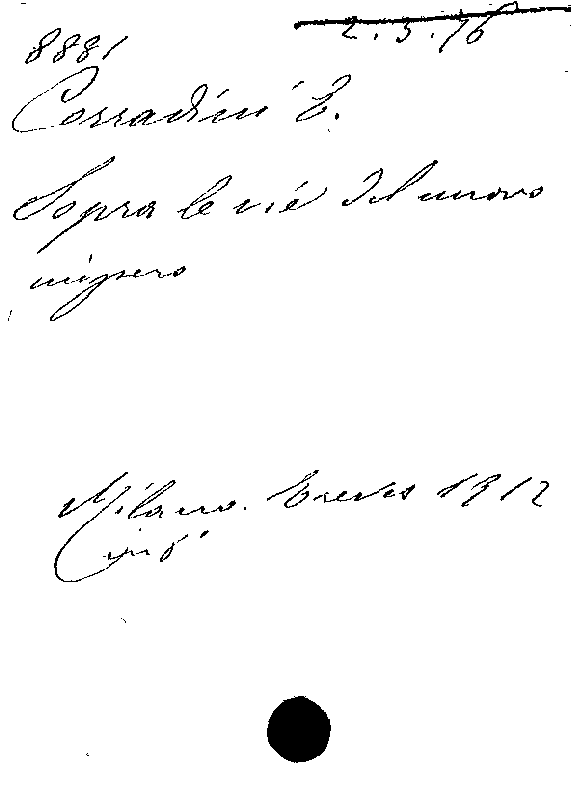 8881
2.3.76
Corradini E.
Sopra le vie del nuovo
impero
Milano. Treves 1912